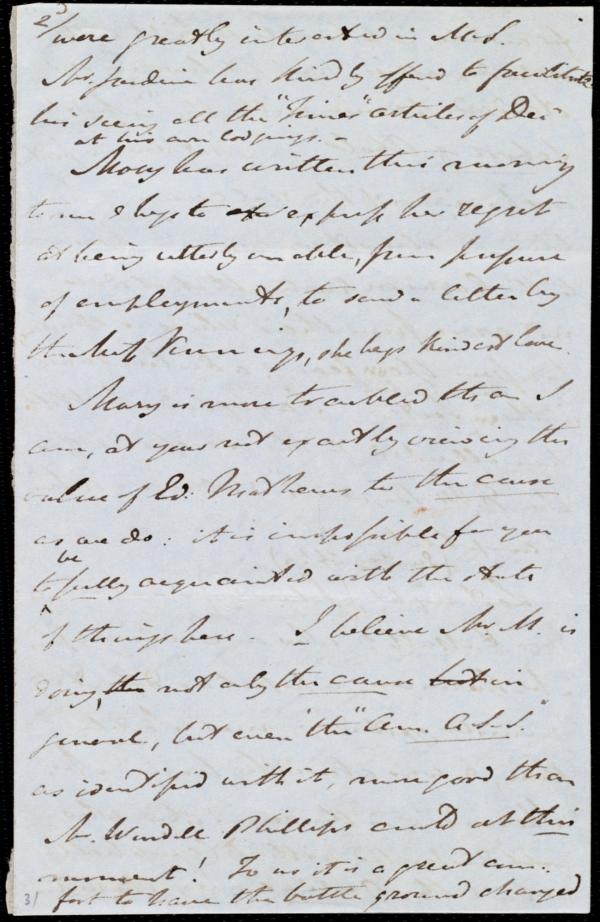 2d/
were greatly interested in Mr S.
Mr Jardine has kindly offered to facilitate
his seeing all the "Times" articles of Dec
at his own lodgings. -
Mary has written this morning
to me & begs to express her regret
at being utterly unable, from pressure
of employments, to send a letter by
the kindest love.
Mary is more troubled than I
am, at your not exactly viewing the
value of Ed: Mathews to the cause
as we do: it is impossible for you
to be fully acquainted with the state
of things here - I believe Mr M. is
doing, not only the cause in
general, but even "the "Am. A.S.S."
as identified with it, more good than
Mr. Wendell Phillips could at this
moment! To us it is a great com-
fort to have the battle ground changed
31